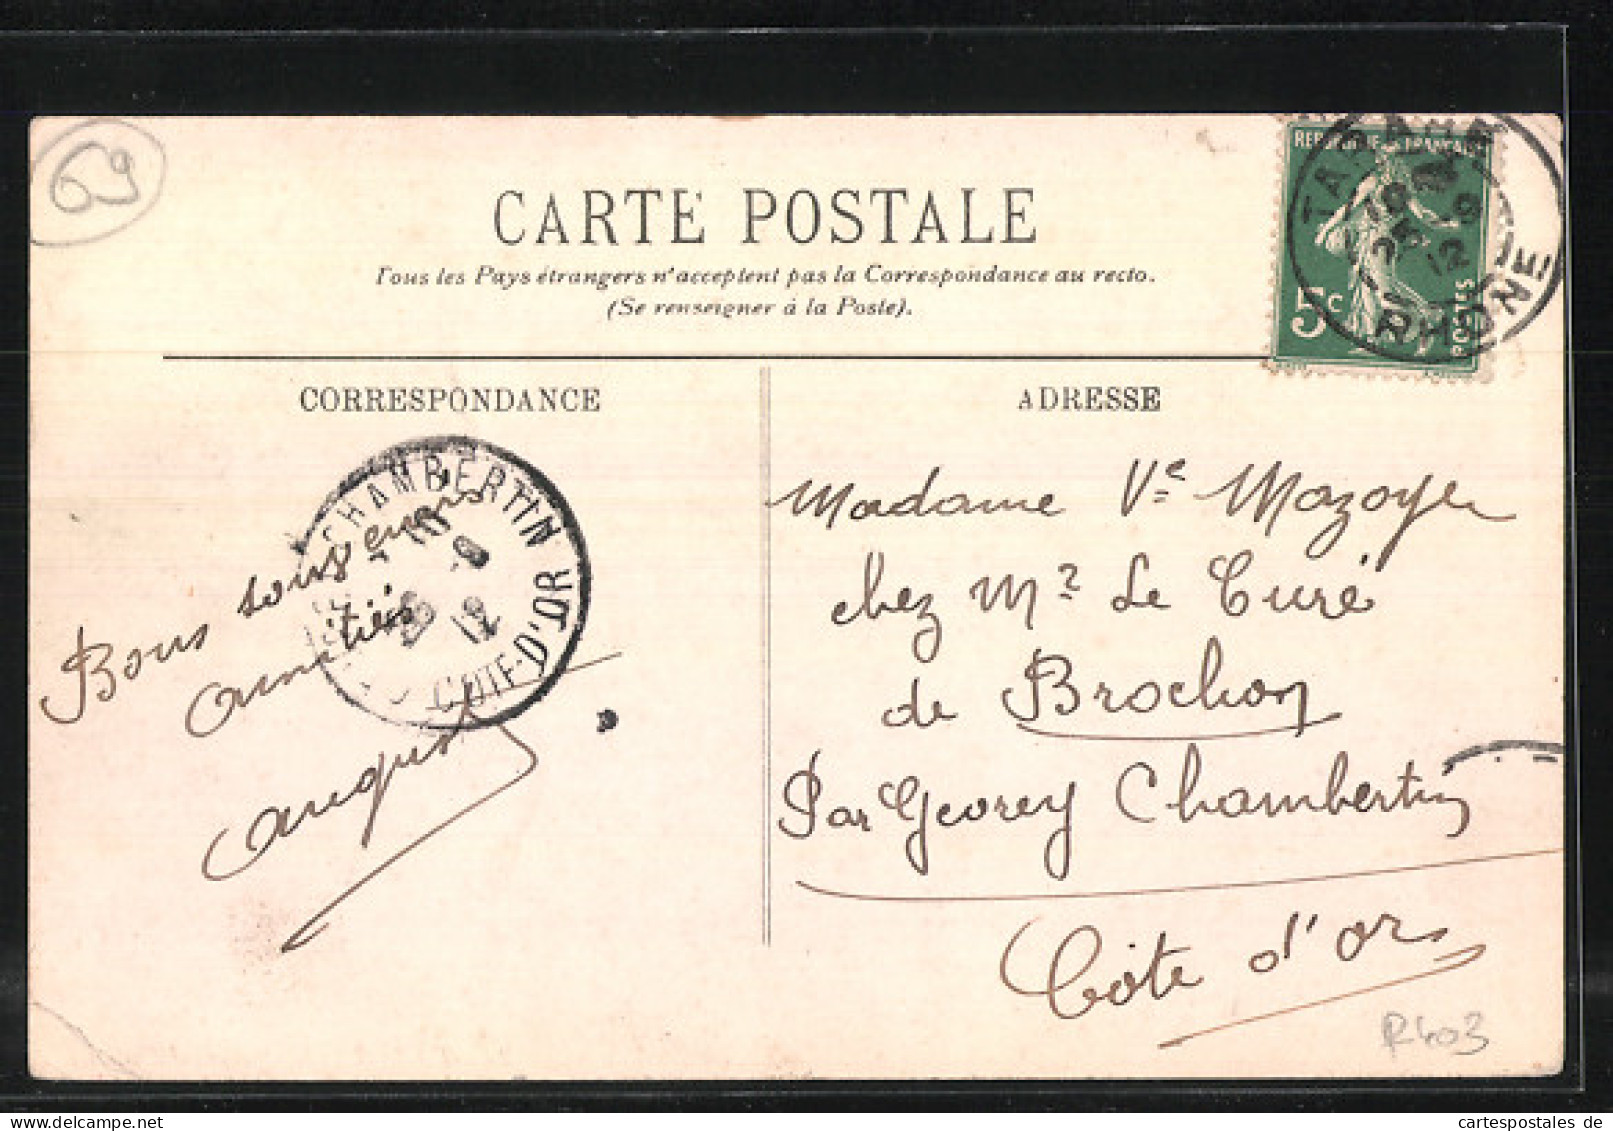 69
CARTE POSTALE
Tous les Pays étrangers n'acceptent pas la Correspondance au recto.
(Se renseigner à la Poste).
REPUBLIQUE FRANÇAISE
5c
POSTES
RHONE
25 9
12
CORRESPONDANCE
CHAMBERTIN
COTE-D'OR
Bons souvenirs
amitiés
ADRESSE
Madame Vᵉ Mazoyer
chez Mʳ Le Curé
de Brochon
Par Gevrey Chambertin
Côte d'or
R403
cartespostales de